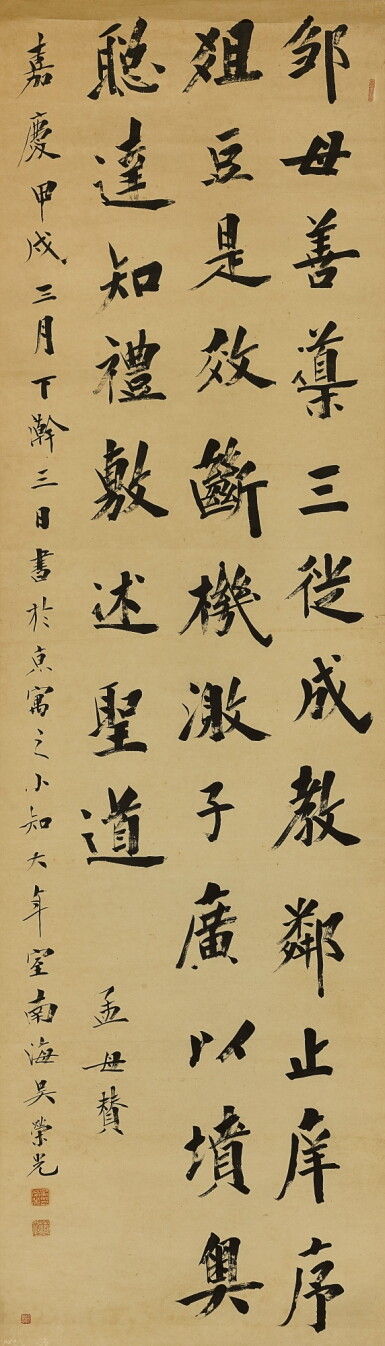 鄒母善導三徙成教鄰止庠序
俎豆是效斷機激子廣以墳奧
聡達知禮敷述聖道
孟母贊
嘉慶甲戌三月下澣三日書於京寓之小知大年室南海吳榮光